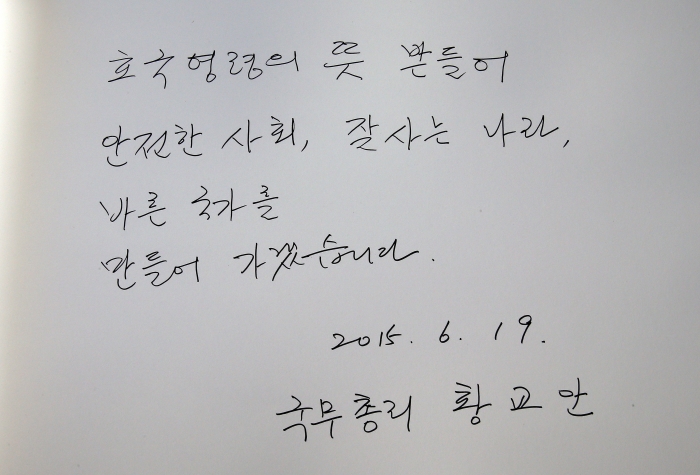 호국영령의 뜻 받들어
안전한 사회, 잘사는 나라,
바른 국가를
만들어 가겠습니다.
2015. 6. 19.
국무총리 황교안